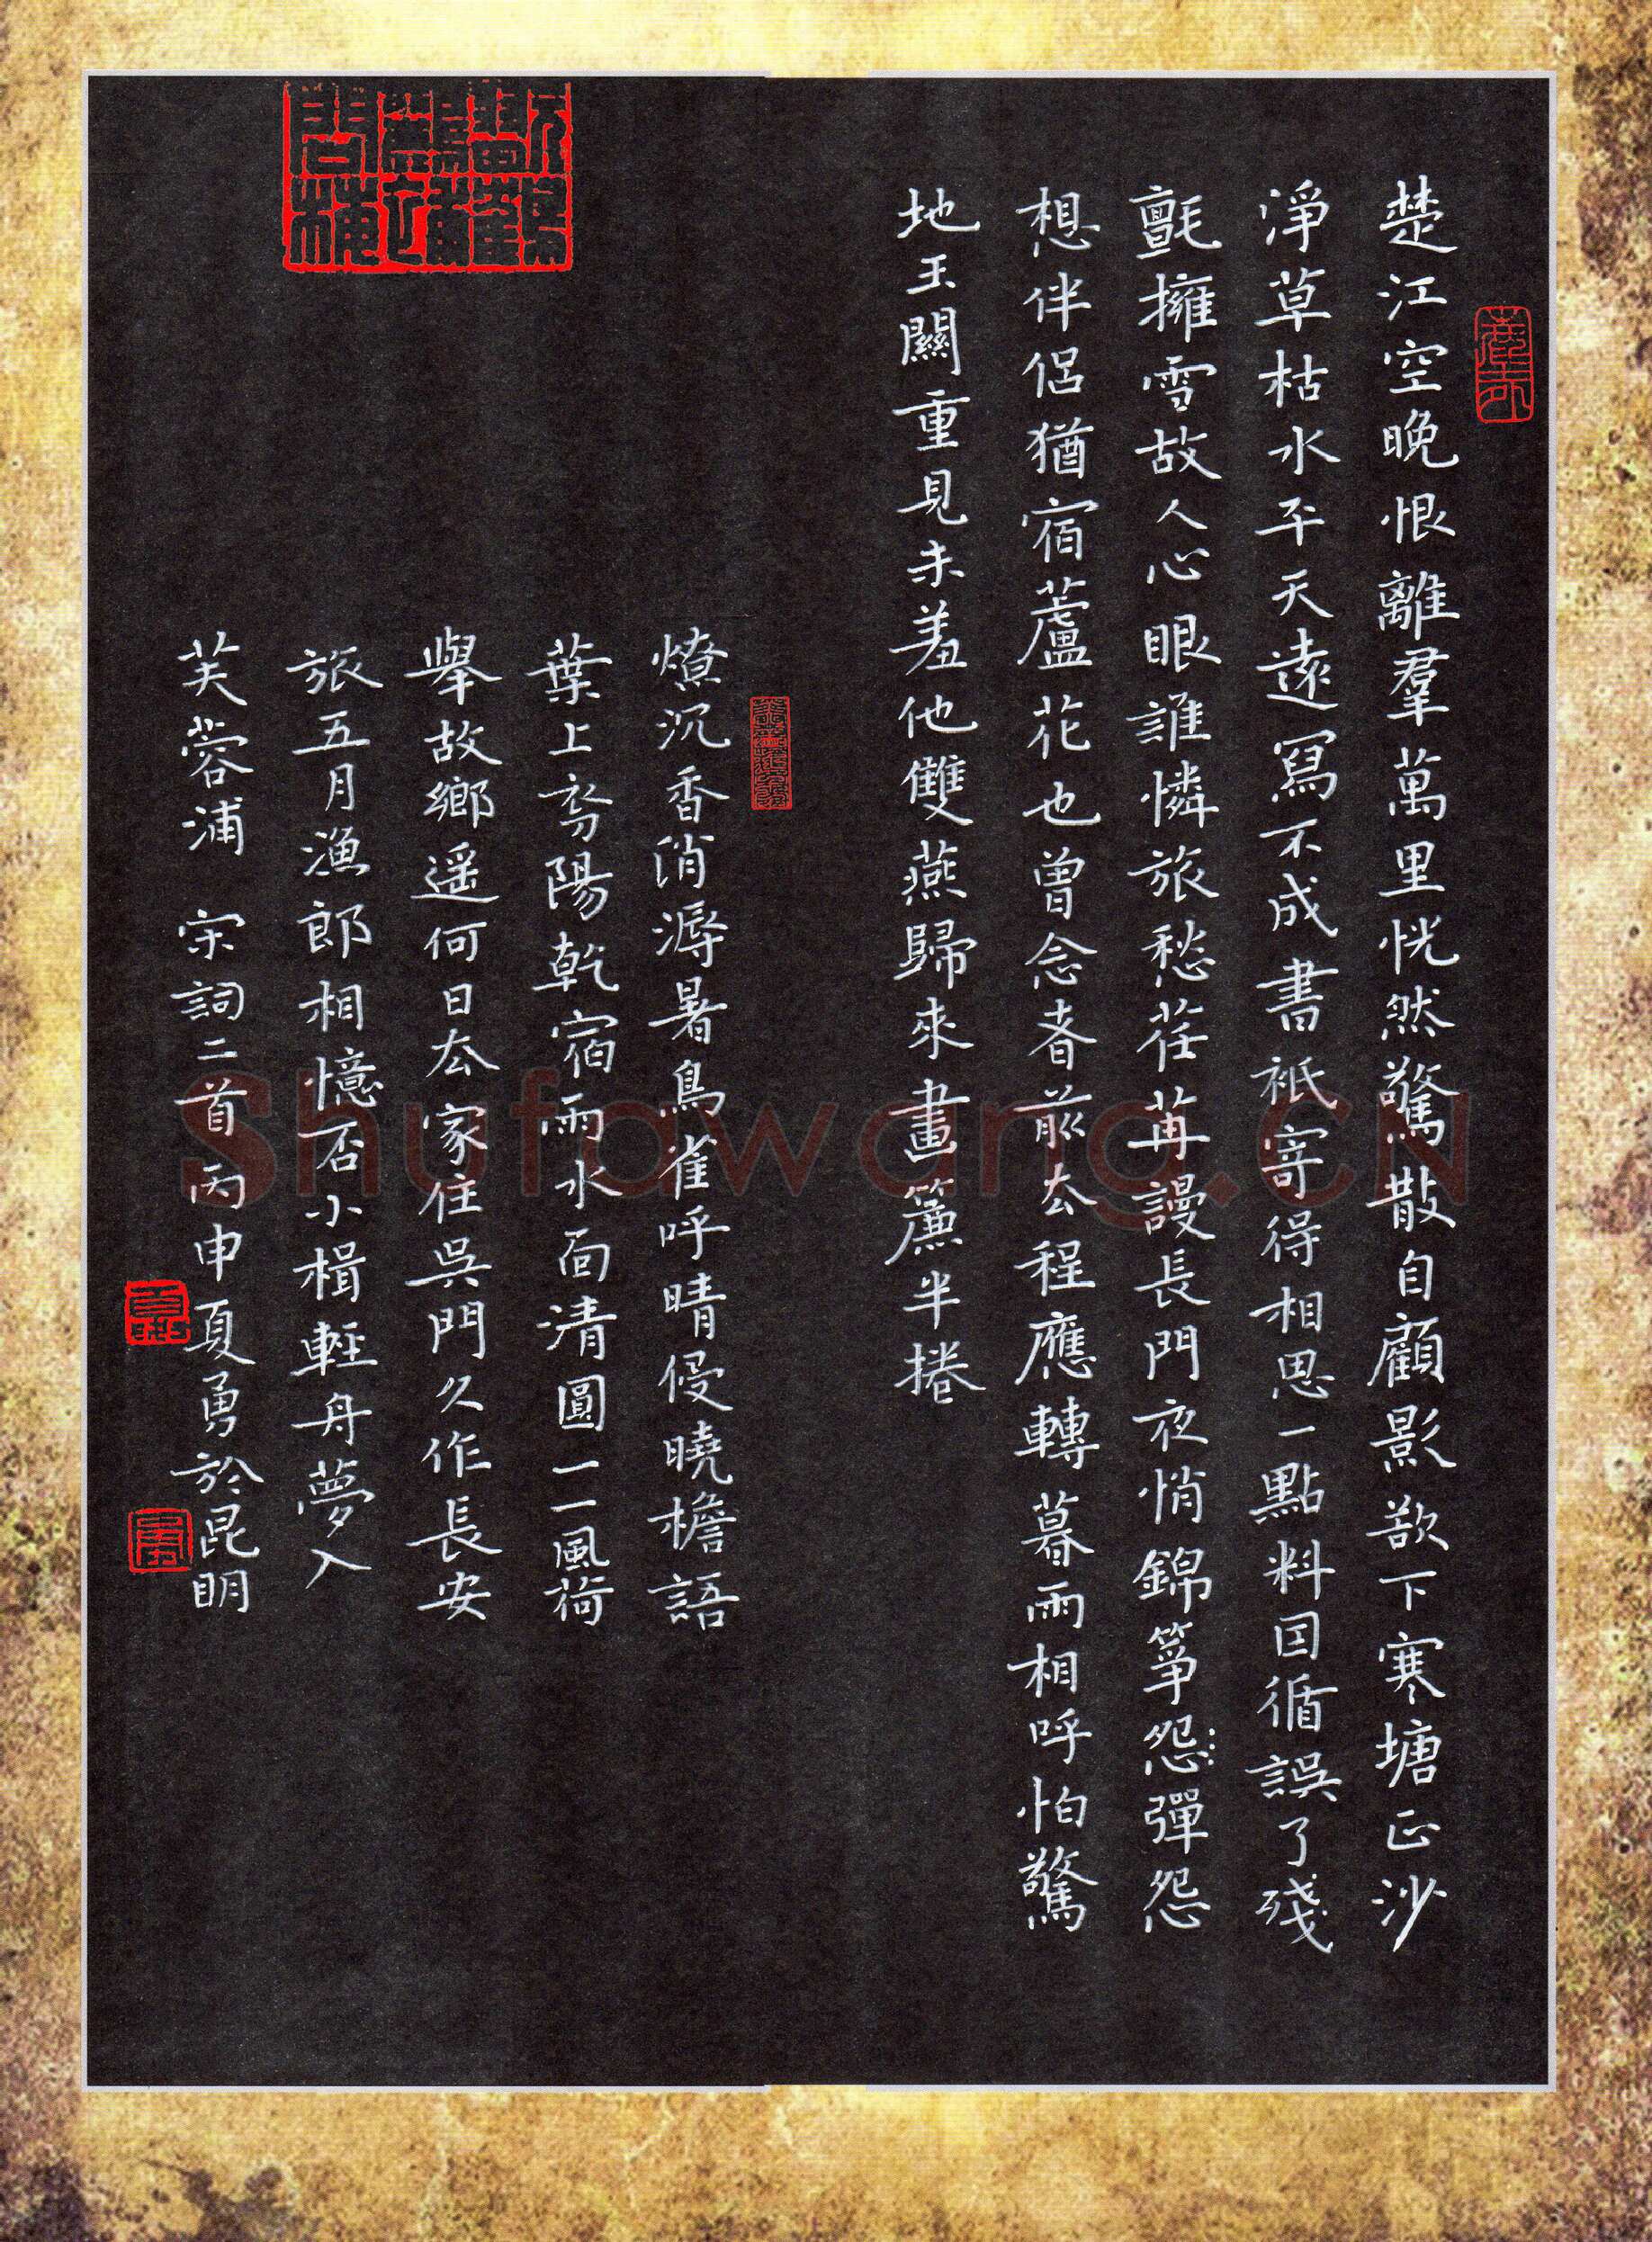 楚江空晚恨離羣萬里恍然驚散自顧影欲下寒塘正沙
淨草枯水平天遠寫不成書祇寄得相思一點料因循誤了殘
氈擁雪故人心眼誰憐旅愁荏苒謾長門夜悄錦筝怨彈怨
想伴侶猶宿蘆花也曾念春前去程應轉暮雨相呼怕驚
地玉關重見未羞他雙燕歸來畫簾半捲
燎沉香消溽暑鳥雀呼晴侵曉檐語
葉上初陽乾宿雨水面清圓一一風荷
舉故鄉遥何日去家住吳門久作長安
旅五月漁郎相憶否小楫輕舟夢入
芙蓉浦 宋詞二首 丙申夏勇於昆明
Shufawang.CN